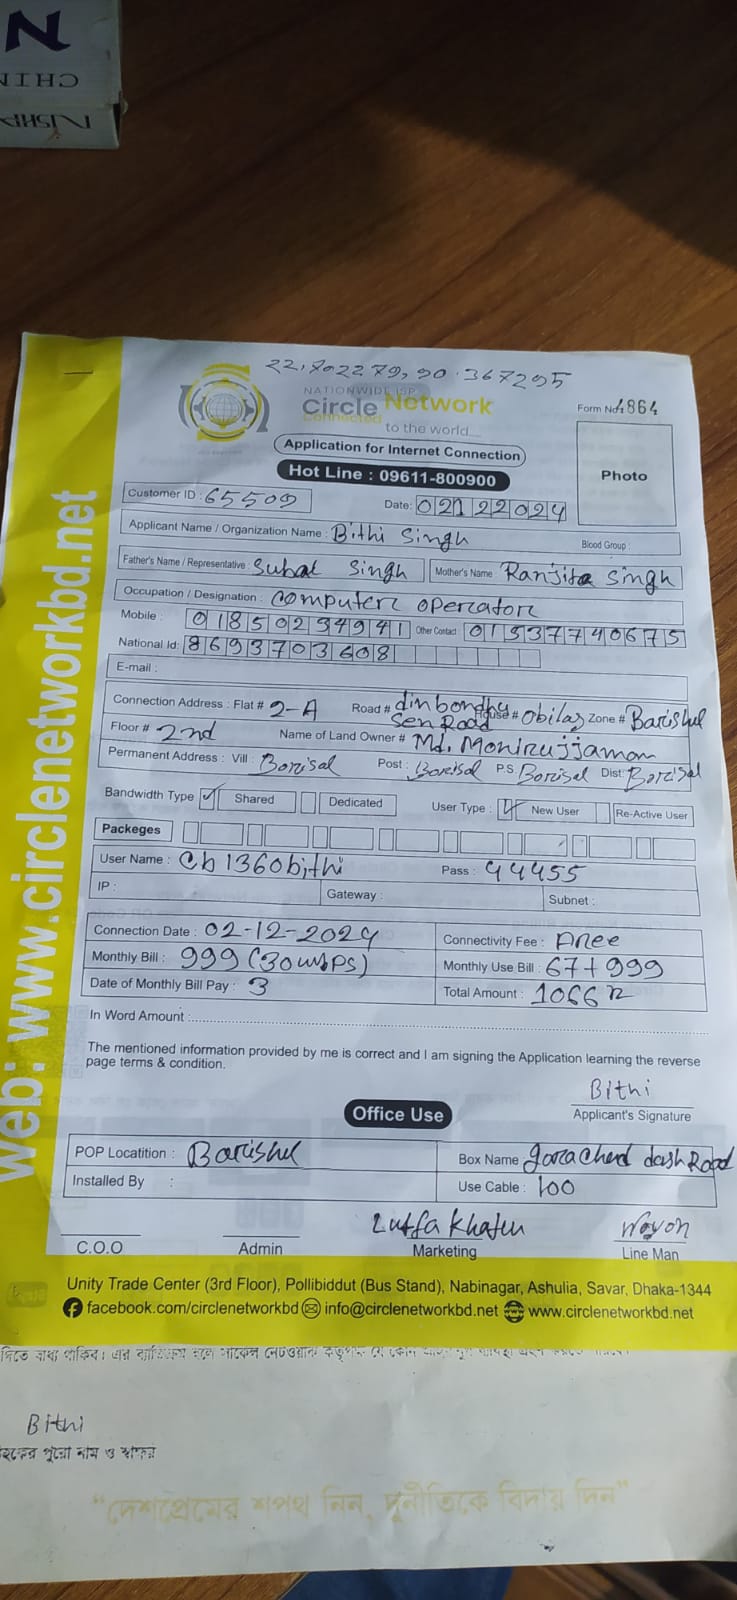 N
CHIN
NISHA
22.702279, 90.367295
NATIONWIDE ISP
Circle Network
Connected to the world...
Form No: 4864
Application for Internet Connection
Hot Line : 09611-800900
Photo
Customer ID : 65509
Date: 02122024
Applicant Name / Organization Name : Bithi Singh
Blood Group :
Father's Name / Representative : Subal Singh Mother's Name Ranjita Singh
Occupation / Designation : Computer operator
Mobile : 01850234941 Other Contact 01537740675
National Id: 8693703608
E-mail :
Connection Address : Flat # 2-A Road # dinbondhu Sen Road House # Zone # Barishul
Floor # 2nd Name of Land Owner # Md. Monirujjaman
Permanent Address : Vill : Borisal Post : Borisal P.S. Borisal Dist: Borisal
Bandwidth Type ✓ Shared Dedicated User Type : ✓ New User Re-Active User
Packeges
User Name : Cb1360bithi Pass : 44455
IP : Gateway : Subnet :
Connection Date : 02-12-2024 Connectivity Fee :
Monthly Bill : 999 (30mbps) Monthly Use Bill : 67+999
Date of Monthly Bill Pay : 3 Total Amount : 1066
In Word Amount :
The mentioned information provided by me is correct and I am signing the Application learning the reverse
page terms & condition.
Bithi
Applicant's Signature
Office Use
POP Locatition : Barishul Box Name gorachand dash Road
Installed By : Use Cable : 100
Lutfa Khatun
C.O.O Admin Marketing Line Man
Unity Trade Center (3rd Floor), Pollibiddut (Bus Stand), Nabinagar, Ashulia, Savar, Dhaka-1344
facebook.com/circlenetworkbd info@circlenetworkbd.net www.circlenetworkbd.net
web: www.circlenetworkbd.net
Bithi
পুরো নাম ও স্বাক্ষর
“দেশপ্রেমের শপথ নিন, দুর্নীতিকে বিদায় দিন”